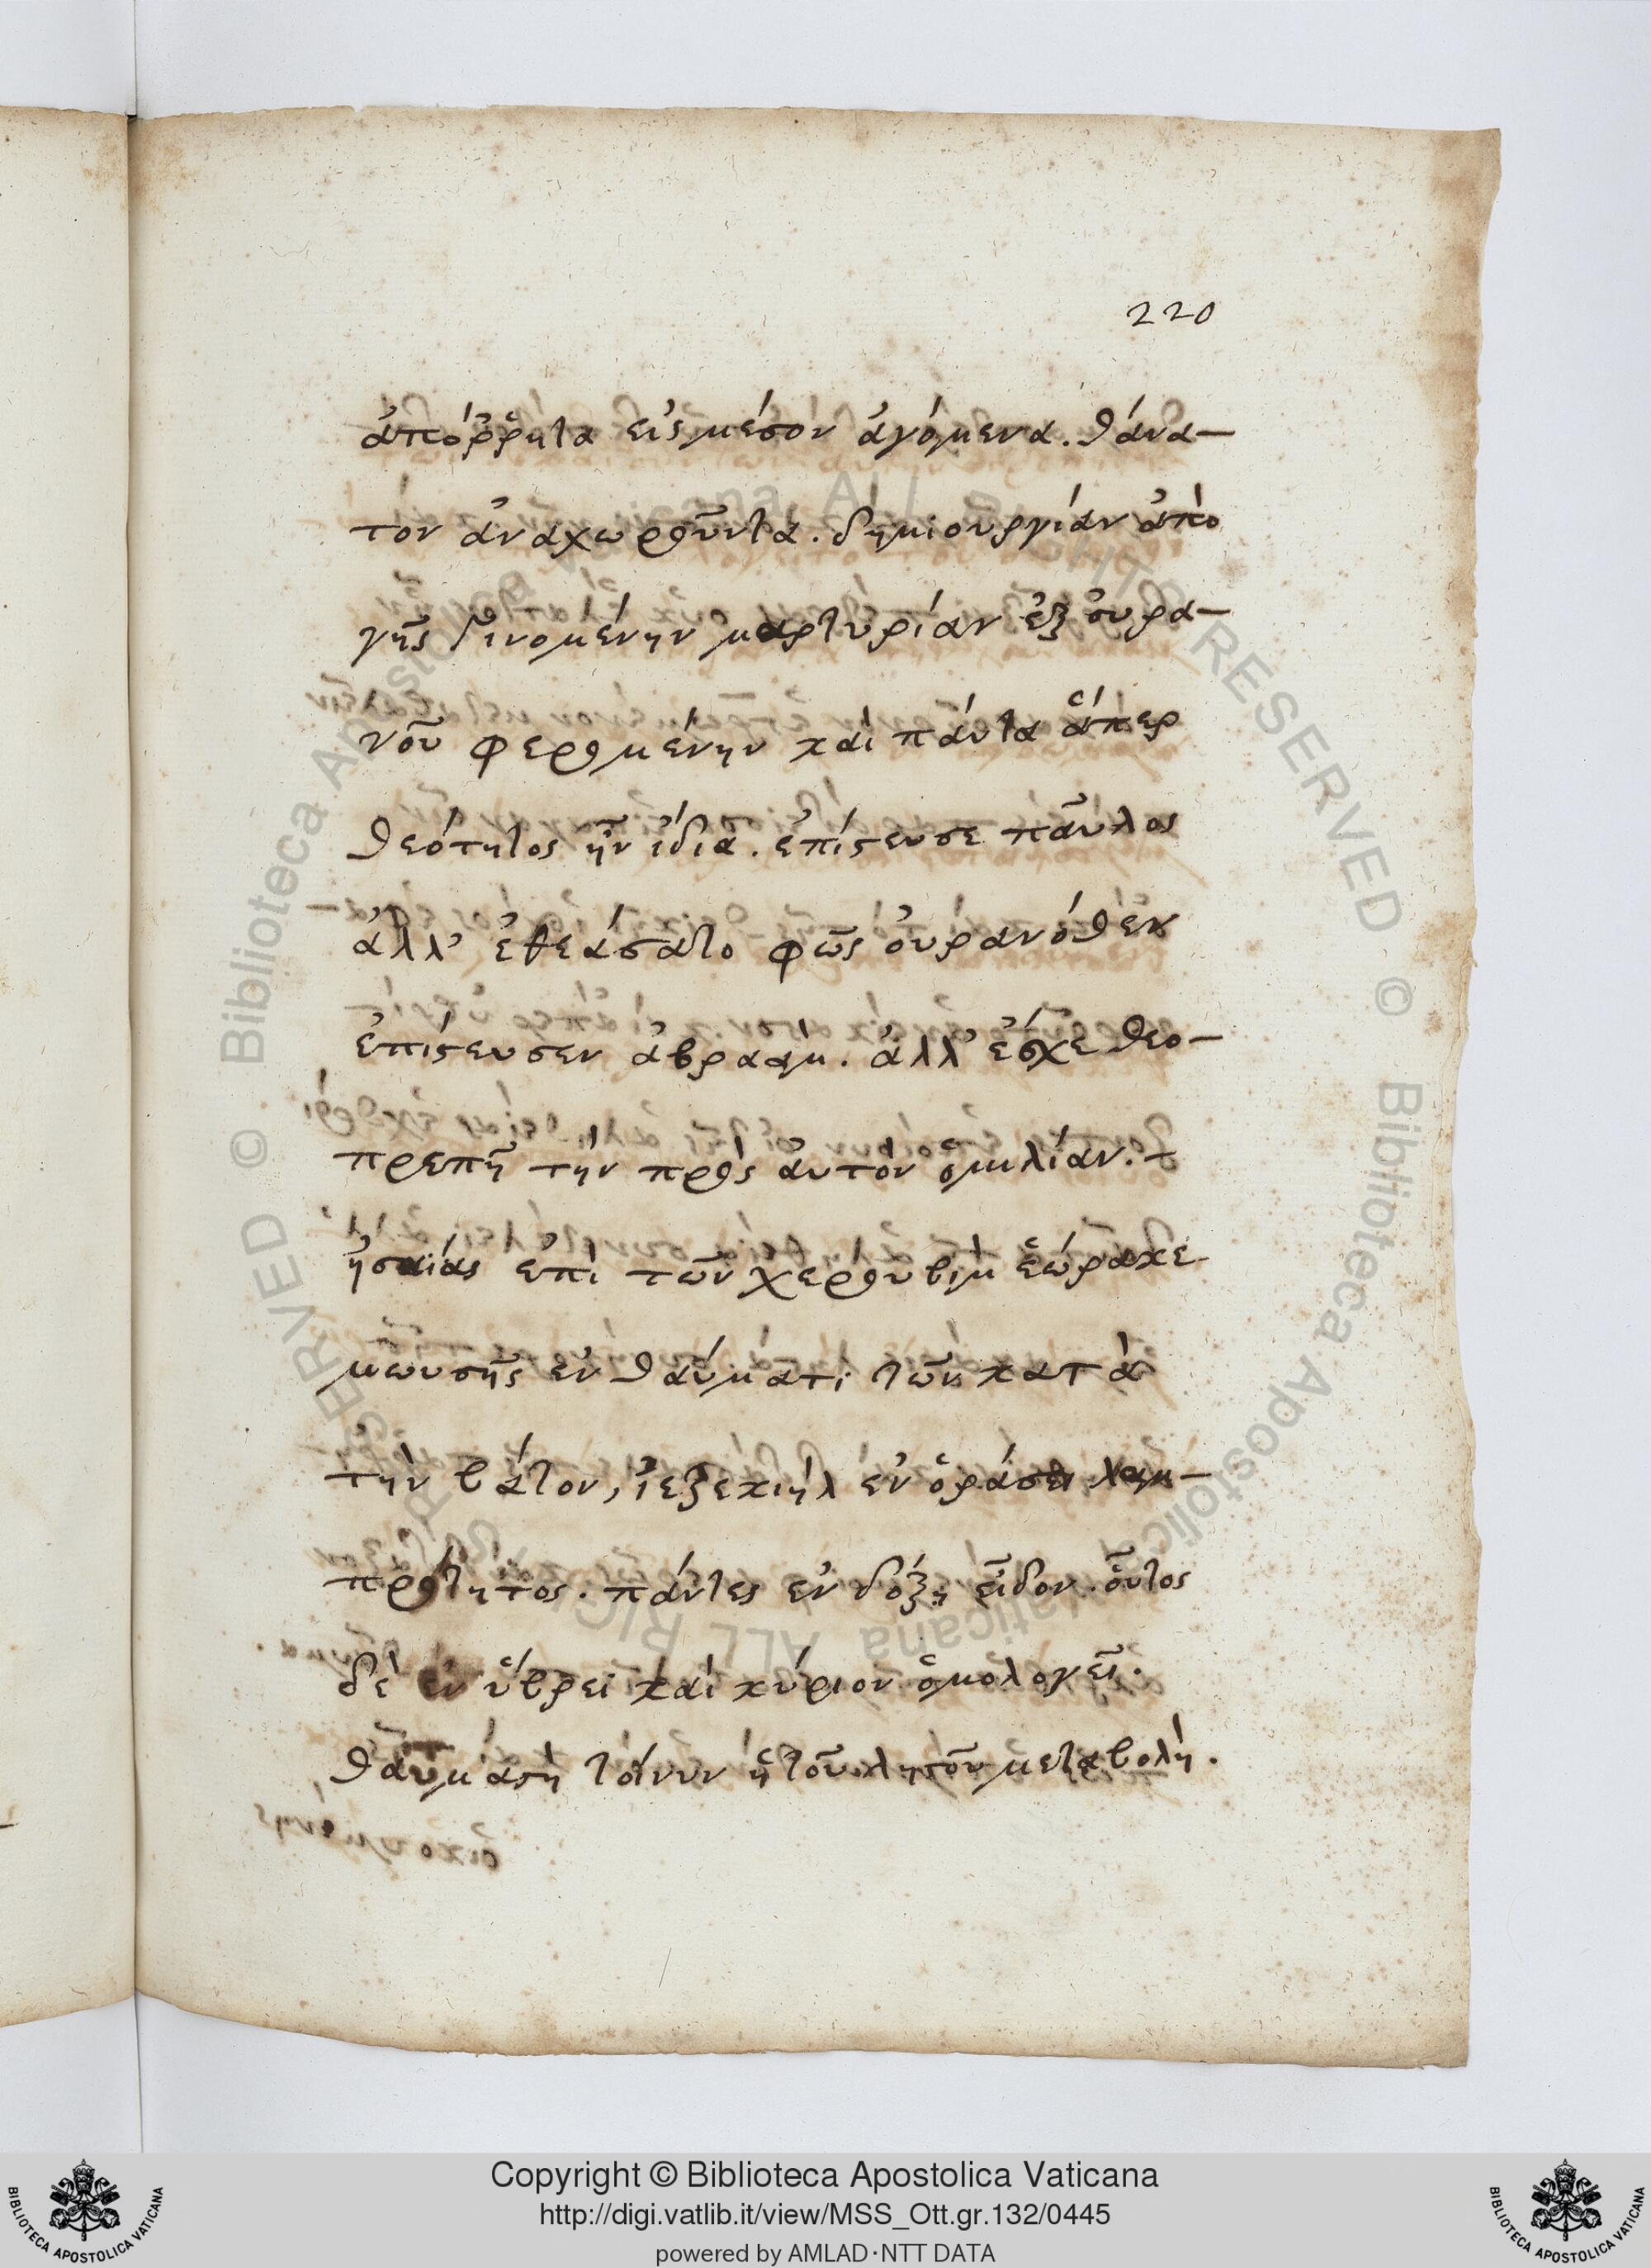 220
ἀπόῤῥητα εἰς μέσον ἀγόμενα. θάνα-
τον ἀναχωροῦντα. δημιουργίαν ἀπὸ
γῆς γινομένην μαρτυρίαν ἐξ οὐρα-
νοῦ φερομένην καὶ πάντα ἅπερ
θεότητος ἦν ἴδια. ἐπίστευσε παῦλος
ἀλλ' ἐθεάσατο φῶς οὐρανόθεν
ἐπίστευσεν ἀβραάμ. ἀλλ' ἔσχε θεο-
πρεπῆ τὴν πρὸς αὐτὸν ὁμιλίαν.
ἠσαΐας ἐπὶ τῶν χερουβὶμ ἑώρακε
μωυσῆς ἐν θαύματι τῶν κατὰ
τὴν βάτον, ἰεζεκιὴλ ἐν ὁράσει λαμ-
πρότητος. πάντες ἐν δόξῃ εἶδον. οὗτος
δὲ ἐν ὕβρει καὶ κύριον ὁμολογεῖ.
θαυμαστὴ τοίνυν ἡ τοῦ λῃστοῦ μεταβολή.
© Biblioteca Apostolica Vaticana ALL RIGHTS RESERVED
© Biblioteca Apostolica Vaticana ALL RIGHTS RESERVED
BIBLIOTECA APOSTOLICA VATICANA
Copyright © Biblioteca Apostolica Vaticana
http://digi.vatlib.it/view/MSS_Ott.gr.132/0445
powered by AMLAD·NTT DATA
BIBLIOTECA APOSTOLICA VATICANA